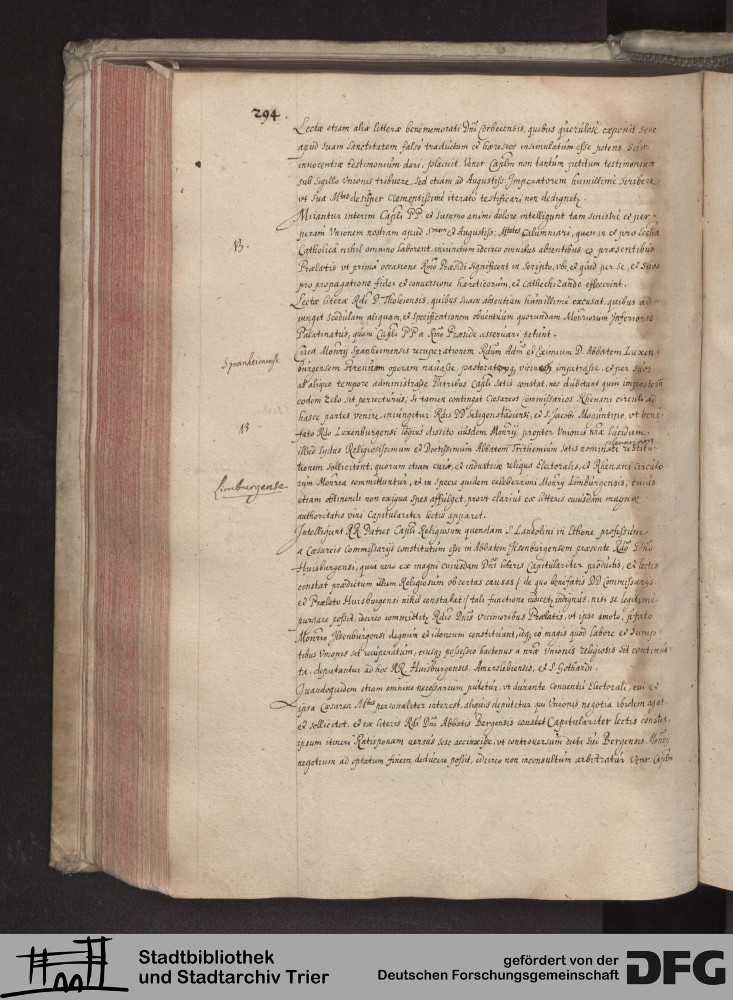 294.
Lectæ etiam aliæ litteræ benememorati Dni Corbeiensis, quibus quærulose exponit sese
apud suam Sanctitatem false traductum et hæreseos insimulatum esse petens
innocentiæ testimonium dari, placuit Vener Caplm non tantum petitum testimonium
sub sigillo Unionis tribuere, sed etiam ad Augustiss: Imperatorem humillime scribere
ut sua Mttas desuper Clementissime iterato testificari non dedignetur.
Mirantur interim Capli PP et summo animi dolore intelligunt tam sinistre et per
peram Unionem nostram apud Smam et Augustiss: Mttates Calumniari, quasi in et pro Ecclia
Catholica nihil omnino laborent, iniunctum idcirco omnibus absentibus et præsentibus
Prælatis ut prima occasione Rmo Præsidi significent in scripto, ubi, et quid per se, et suos
pro propagatione fidei et conversione hæreticorum, et Cathechizando effecerint.
Lectæ literæ Rdi D. Tholeiensis, quibus suam absentiam humillime excusat, quibus ad
iunget scedulam aliquam, et specificationem obuentuum quorundam Monriorum Inferioris
Palatinatus, quam Capli PP a Rmo Præside asseruari petunt.
Spanheimense
Circa Monrij Spanheimensis recuperationem Rdum ddm et Eximium D. Abbatem Luxen
burgensem strenuam operam navasse, pastoratemque vicinum impetrasse, et per suos
ab aliquo tempore administrasse Patribus Capli satis constat, nec dubitant quin imposterum
eodem zelo sit perrecturus; si tamen contingat Cæsareos Commissarios Rhenani circuli ad
hasce partes venire, iniungitur Rdis DD Seligenstadiensi, et S. Jacobi Moguntiæ, ut beni
fato Rdo Luxenburgensi longius dissito eiusdem Monrij propter Unionis nræ lucidum
illud sydus Religiosissimum et Doctissimum Abbatem Trithemium satis nominati plenariam restitu
tionem sollicitent, quorum etiam curæ, et industriæ reliqua Electoralis, et Rhenani Circulo
Limburgense
rum Monria committuntur, et in specie quidem celeberrimi Monrij Limburgensis, cuius
etiam obtinendi non exigua spes affulget, prout clarius ex litteris cuiusdam magnæ
authoritatis viri Capitulariter lectis apparet.
Intelligunt RR Patres Capli Religiosum quendam S. Landolini in Ethone professum
a Cæsareis Commissarijs constitutum esse in Abbatem Ilsenburgensem præsente Rdo Dno
Huisburgensi, quia vero ex magni cuiusdam Dni literis Capitulariter productis, et lectis
constat prædictum illum Religiosum ob certas causas (de quo benefatis DD Commissarijs
et Prælato Huisburgensi nihil constabat) tali functione indignus, nisi se legitime
purgare possit, idcirco committitur Rdis Dnis vicinioribus Prælatis, ut ipso amoto, præfato
Monrio Ilsenburgensi dignum et idoneum constituant, idque eo magis quod labore et sump
tibus Unionis sit recuperatum, eiusque possessio hactenus a nræ Unionis religiosis sit continua
ta. deputantur ad hoc RR. Huisburgensis, Amerslebiensis, et S. Gothardi.
Quandoquidem etiam omnino necessarium putetur, ut durante Conventu Electorali, cui et
ipsa Cæsarea Mttas personaliter interest, aliquis deputetur qui Unionis negotia ibidem agat
et sollicitet, et ex literis Rdi Dni Abbatis Bergensis constet Capitulariter lectis constet,
ipsum itineri Ratisponam versus sese accinxisse, ut controversum dicti sui Bergensis Monrij
negotium ad optatum finem deducere possit, idcirco non inconsultum arbitratur Vener. Caplm
Stadtbibliothek
und Stadtarchiv Trier
gefördert von der
Deutschen Forschungsgemeinschaft
DFG